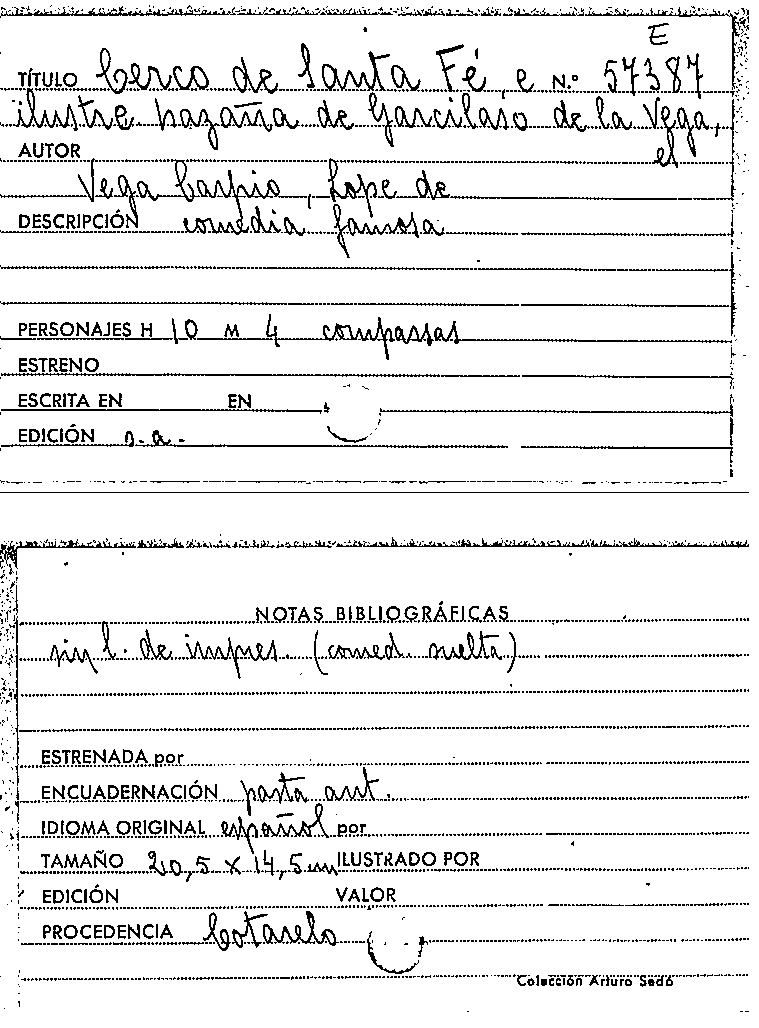 E
TÍTULO Cerco de Santa Fé, e N.º 57387
ilustre hazaña de Garcilaso de la Vega,
el
AUTOR
Vega Carpio, Lope de
DESCRIPCIÓN comedia famosa
PERSONAJES H 10 M 4 comparsas
ESTRENO
ESCRITA EN EN
EDICIÓN s.a.
NOTAS BIBLIOGRÁFICAS
sin l. de impres. (comed. suelta)
ESTRENADA por
ENCUADERNACIÓN pasta ant.
IDIOMA ORIGINAL español por
TAMAÑO 20,5 x 14,5 cm ILUSTRADO POR
EDICIÓN VALOR
PROCEDENCIA Cotarelo
Colección Arturo Sedó